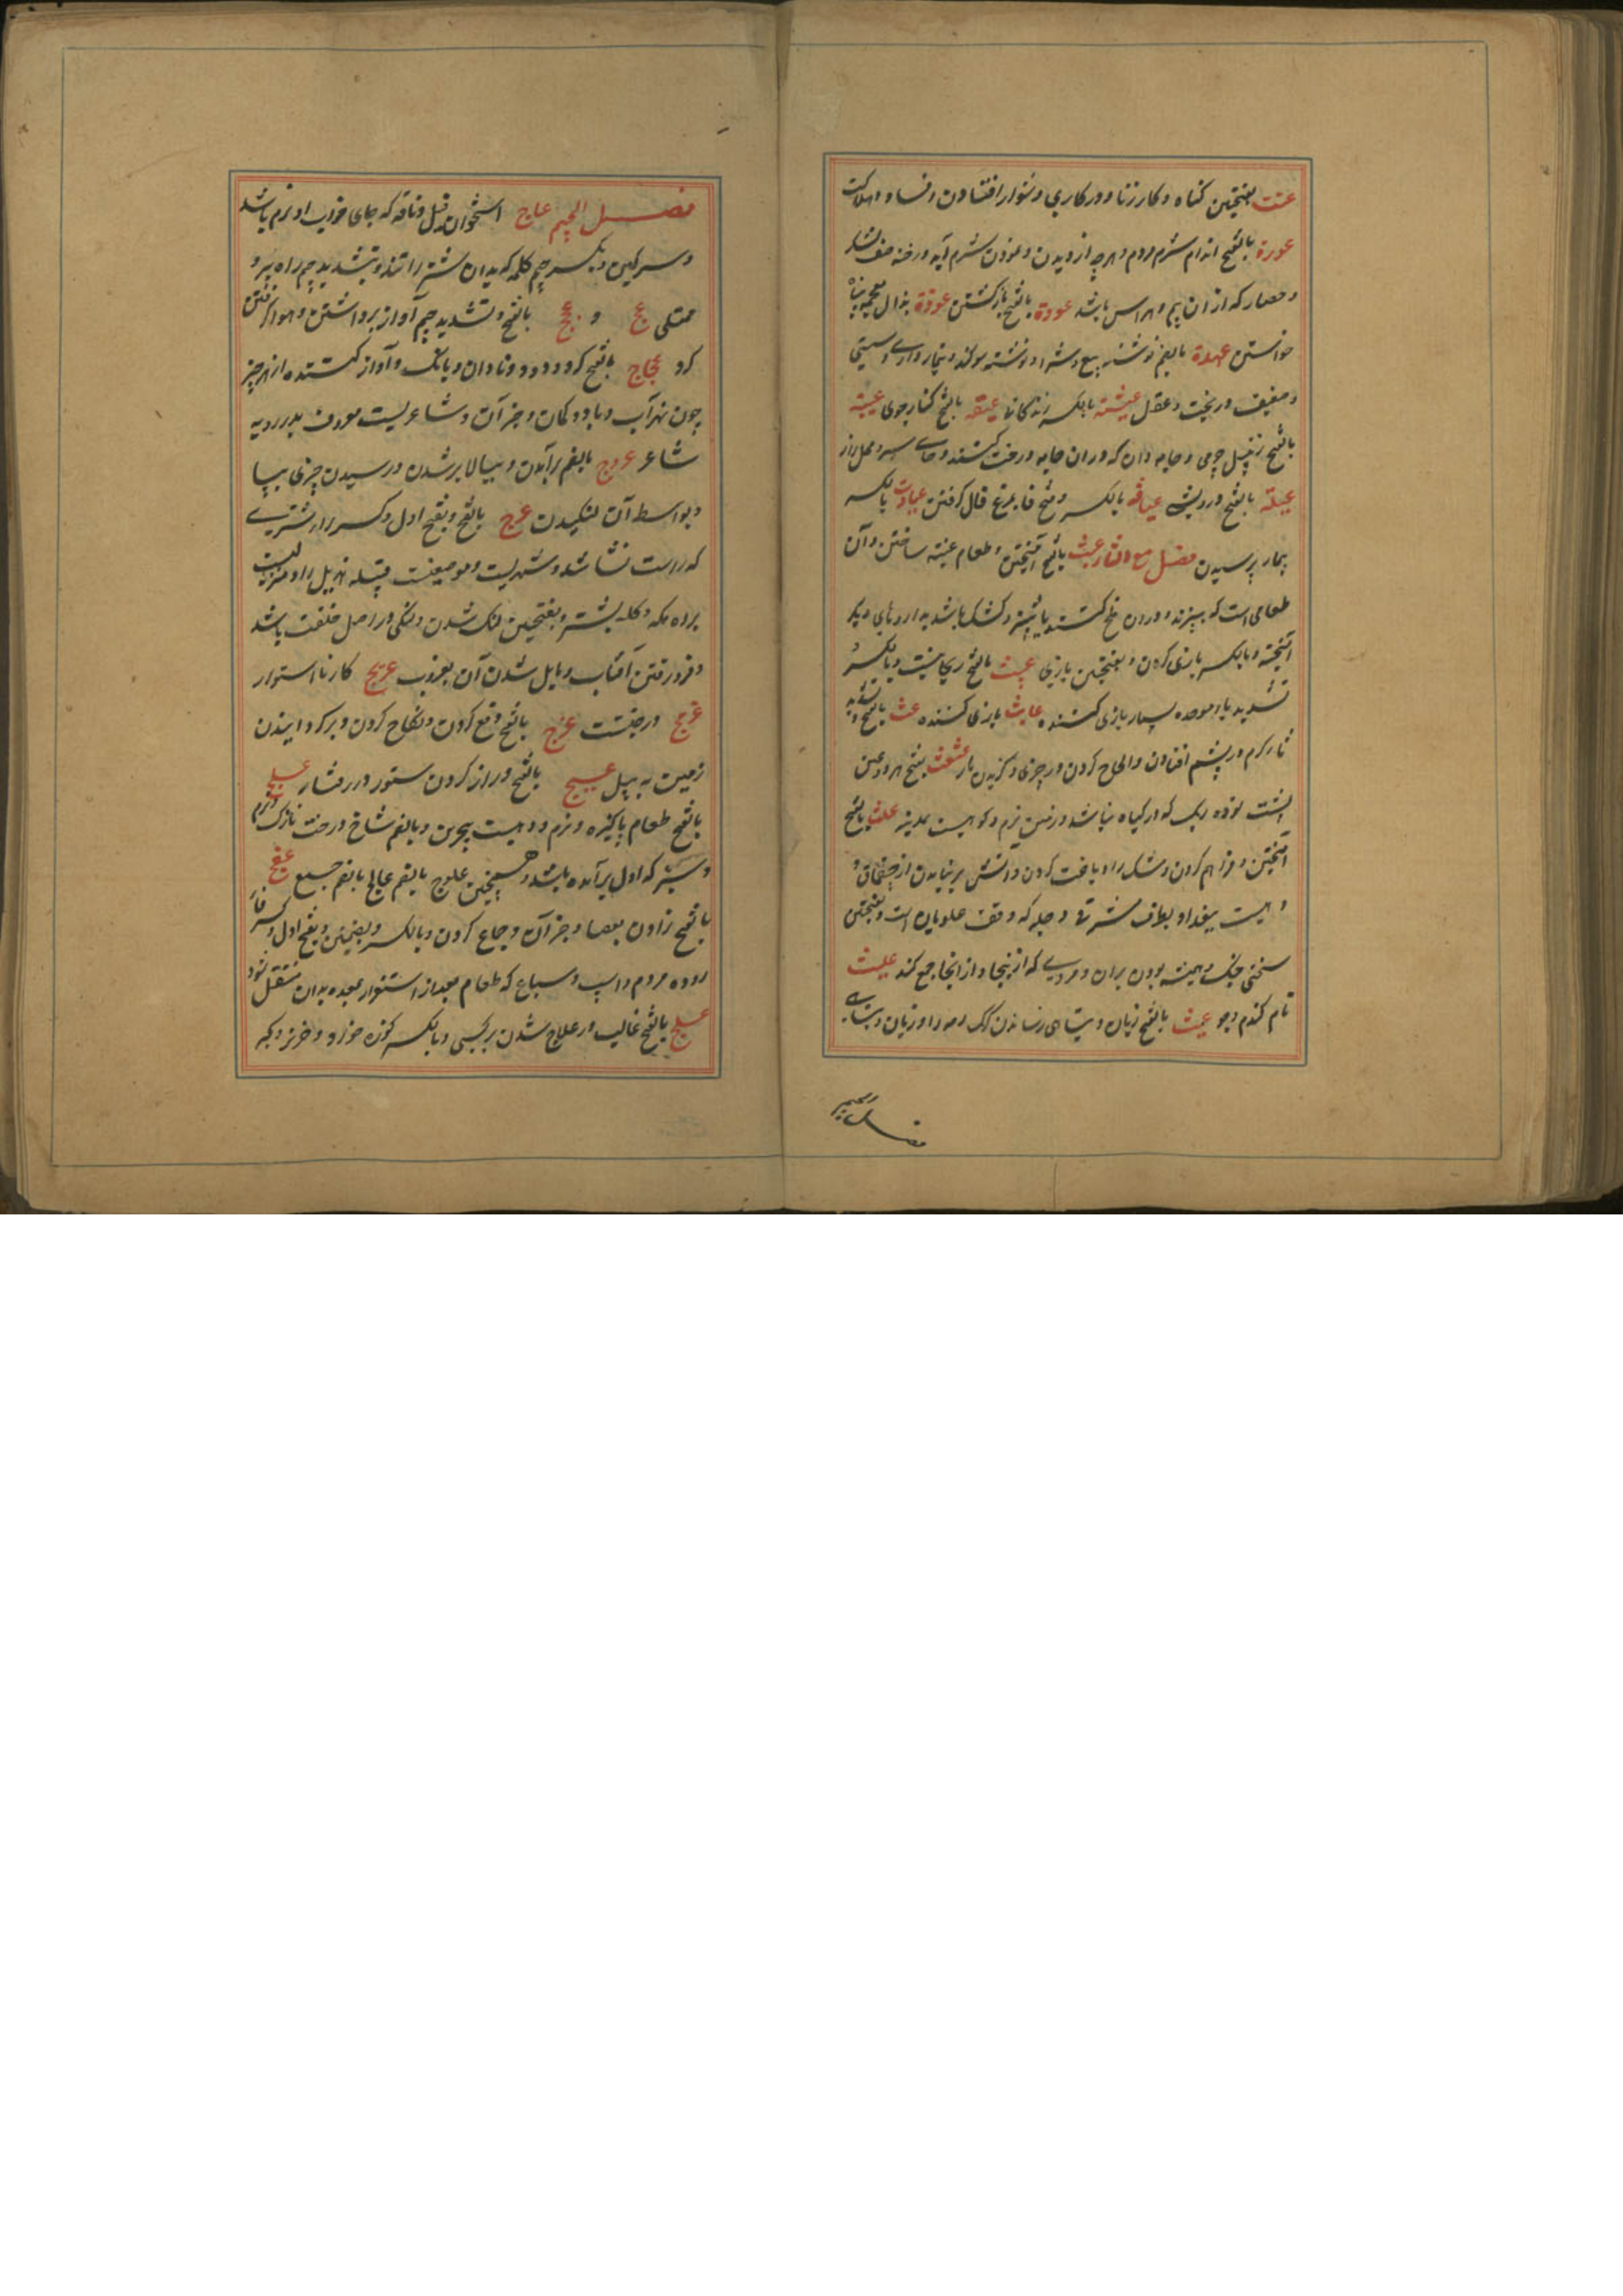 عنت بفتحتین کناه و کار زنا و در کاری دشوار افتادن و فساد و هلاکت
عورة بالفتح اندام شرم مردم و هرچه از دیدن و نمودن شرم آید و رخنه صف لشکر
و حصار که از ان بیم و هراس باشد عودة بالفتح بازکشتن عوذة بذال معجمه پناه
خواستن عهدة بالضم نوشته بیع و شرا و نوشته سوکند و تیمار داری و سستی
و ضعیف در بخت و عقل عیشة بالکسر زندکانی عیقة بالفتح کنار جوی عیبة
بالفتح زنبیل چرمی و جامه دان که دران جامه و رخت کنند و جای سر و محل راز
عیلة بالفتح درویشی عیافة بالکسر و فتح فا بمرغ فال کرفتن عیادت بالکسر
بیمار پرسیدن فصل مع الثاء عبث بالفتح آمیختن و طعام عبیثه ساختن و آن
طعامی است که بپزند و درون ملخ کنند یا پنیر و کشک باشد بداروهای دیکر
آمیخته و بالکسر بازی کردن و بفتحتین بازی عبث بالفتح ریحانیست و بالکسر و
تشدید باء موحده بسیار بازی کننده عابث بازی کننده عث بالفتح و تشدید
ثا کرم در پشم افتادن و الحاح کردن در چیزی و کزیدن مار عثعث بفتح هر دو عین
پشت توده ریک که در کیاه نباشد و زمین نرم و کوهیست بمدینه علث بالفتح
آمیختن و فراهم کردن و مشک را دباغت کردن و آتش بر نیامدن از چقماق و
دهیست ببغداد بطرف شرقی دجله که وقف علویان است و بفتحتین
سختی جنک و همیشه بودن بران و مردی که از ینجا و از انجا جمع کند علیث
نام کندم و جو عیث بالفتح زیان و تباهی رسانیدن کرک رمه را و زیان و تباهی
فصل الجیم
فصل الجیم عاج استخوان فیل و ناقه که جای خواب او نرم باشد
و سرکین و بکسر جیم کلمه که بدان شتر را تند و بتشدید جیم راه پر و
ممتلی عج و عجیج بالفتح و تشدید جیم آواز برداشتن و هوا کرفتن
کرد عجاج بالفتح کرد و دود و نادان و بانک و آواز کننده از هر چیز
چون نهر آب و باد و کمان و جز آن و شاعریست معروف پدر رؤبه
شاعر عروج بالضم برآمدن و ببالا بر شدن و رسیدن چیزی بپا
و بواسطه آن لنکیدن عرج بالفتح و بفتح اول و کسر راء شتری
که راست نشاشد و شهریست و موضعیست قبیله هذیل را و منزلیست
براه مکه و کله شتر و بفتحتین لنک شدن و لنکی در اصل خلقت باشد
و فرو رفتن آفتاب و مایل شدن آن بغروب عریج کار نااستوار
عرفج درختیست عزج بالفتح دفع کردن و نکاح کردن و برکردانیدن
زمین به بیل عسیج بالفتح دراز کردن ستور در رفتار عسلج
بالفتح طعام پاکیزه و نرم و دهیست ببحرین و بالضم شاخ درخت نازک و نرم
و سبز که اول برآمده باشد و همچنین علوج بالضم عجالج بالضم جمع عفج
بالفتح زدن بعصا و جز آن و جماع کردن و بالکسر و بضمتین و بفتح اول و کسر فاء
روده مردم و اسپ و سباع که طعام بعد از استقرار بمعده بدان منتقل شود
علج بالفتح غالب در علاج شدن بر کسی و بالکسر کوزه خر و خربزه و کبر